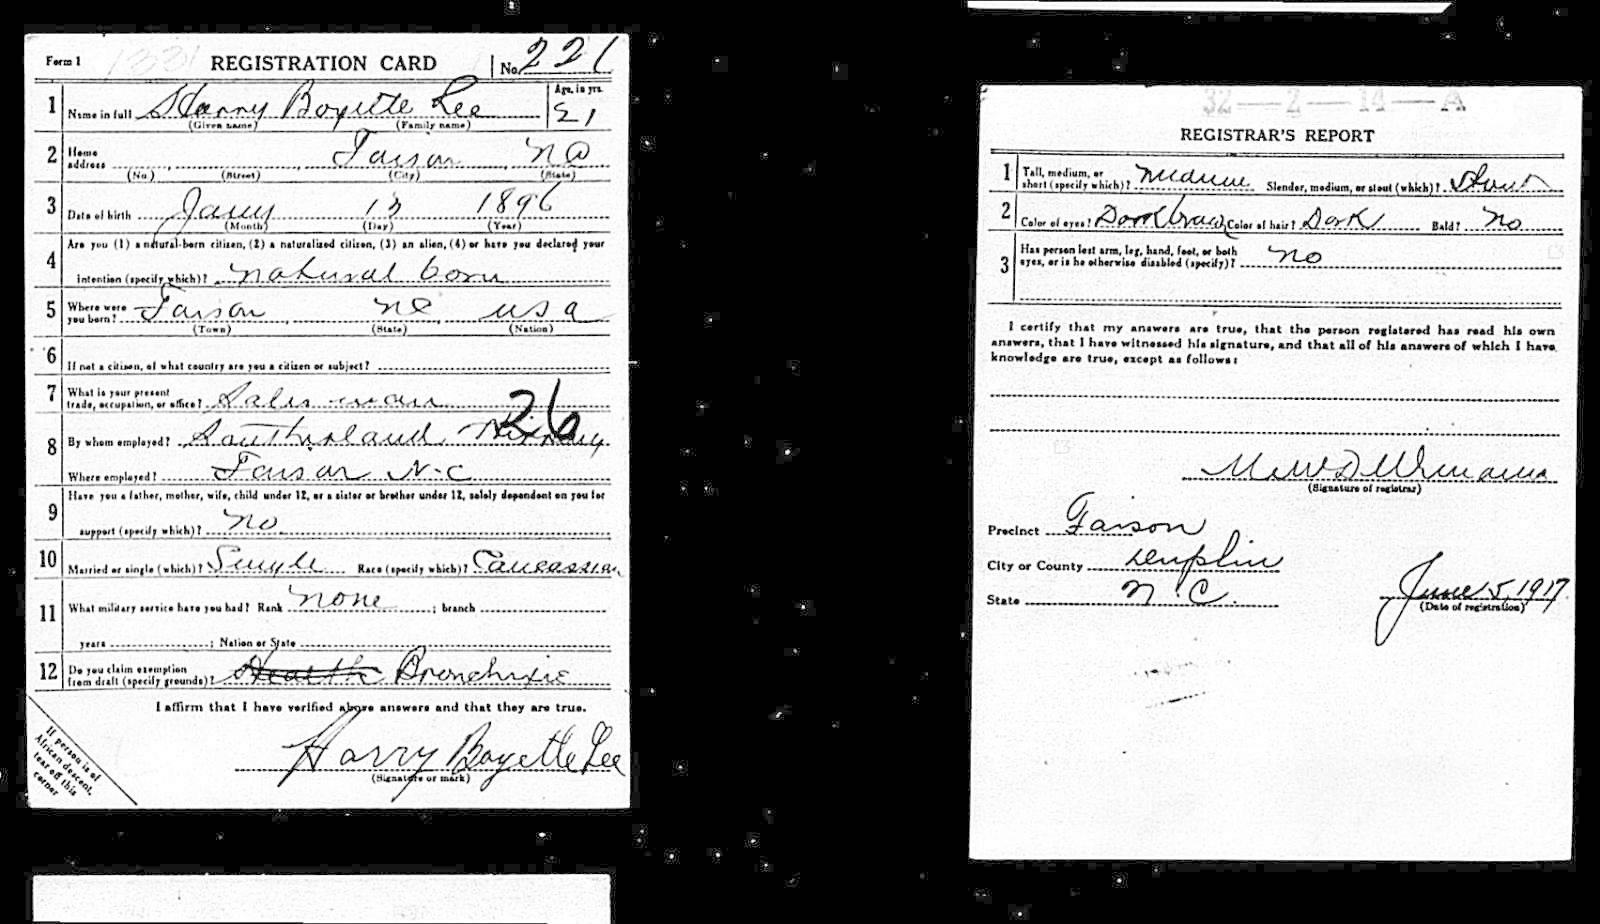 Form 1 1331 REGISTRATION CARD No. 221
1 Name in full Harry Boyette Lee Age, in yrs. 21
(Given name) (Family name)
2 Home address Faison NC
(No.) (Street) (City) (State)
3 Date of birth Jany 13 1896
(Month) (Day) (Year)
4 Are you (1) a natural-born citizen, (2) a naturalized citizen, (3) an alien, (4) or have you declared your
intention (specify which)? natural born
5 Where were you born? Faison NC USA
(Town) (State) (Nation)
6 If not a citizen, of what country are you a citizen or subject?
7 What is your present trade, occupation, or office? Sales man
26
8 By whom employed? Southerland
Where employed? Faison N.C
9 Have you a father, mother, wife, child under 12, or a sister or brother under 12, solely dependent on you for
support (specify which)? no
10 Married or single (which)? Single Race (specify which)? Caucassian
11 What military service have you had? Rank none ; branch
years ; Nation or State
12 Do you claim exemption from draft (specify grounds)? Health
I affirm that I have verified above answers and that they are true.
Harry Boyette Lee
(Signature or mark)
If person is of
African descent,
tear off this
corner
32—2—14—A
REGISTRAR'S REPORT
1 Tall, medium, or short (specify which)? medium Slender, medium, or stout (which)? Stout
2 Color of eyes? Dark brown Color of hair? Dark Bald? No
3 Has person lost arm, leg, hand, foot, or both
eyes, or is he otherwise disabled (specify)? no
I certify that my answers are true, that the person registered has read his own
answers, that I have witnessed his signature, and that all of his answers of which I have
knowledge are true, except as follows:
(Signature of registrar)
Precinct Faison
City or County Duplin
State N.C.
June 5, 1917
(Date of registration)